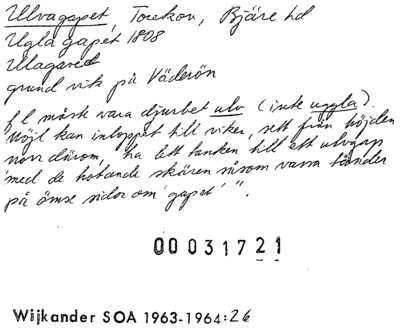 Ulvagapet, Torekov, Bjäre hd
Ugla gapet 1808
Ulagared
grund vik på Väderön
f l måste vara djurbet ulv (inte uggla).
"Möjl kan inloppet till viken, sett från höjden
norr därom, ha lett tanken till ett ulvgap
med de hotande skären såsom vassa tänder
på ömse sidor om 'gapet' ".
00031721
Wijkander SOA 1963-1964:26